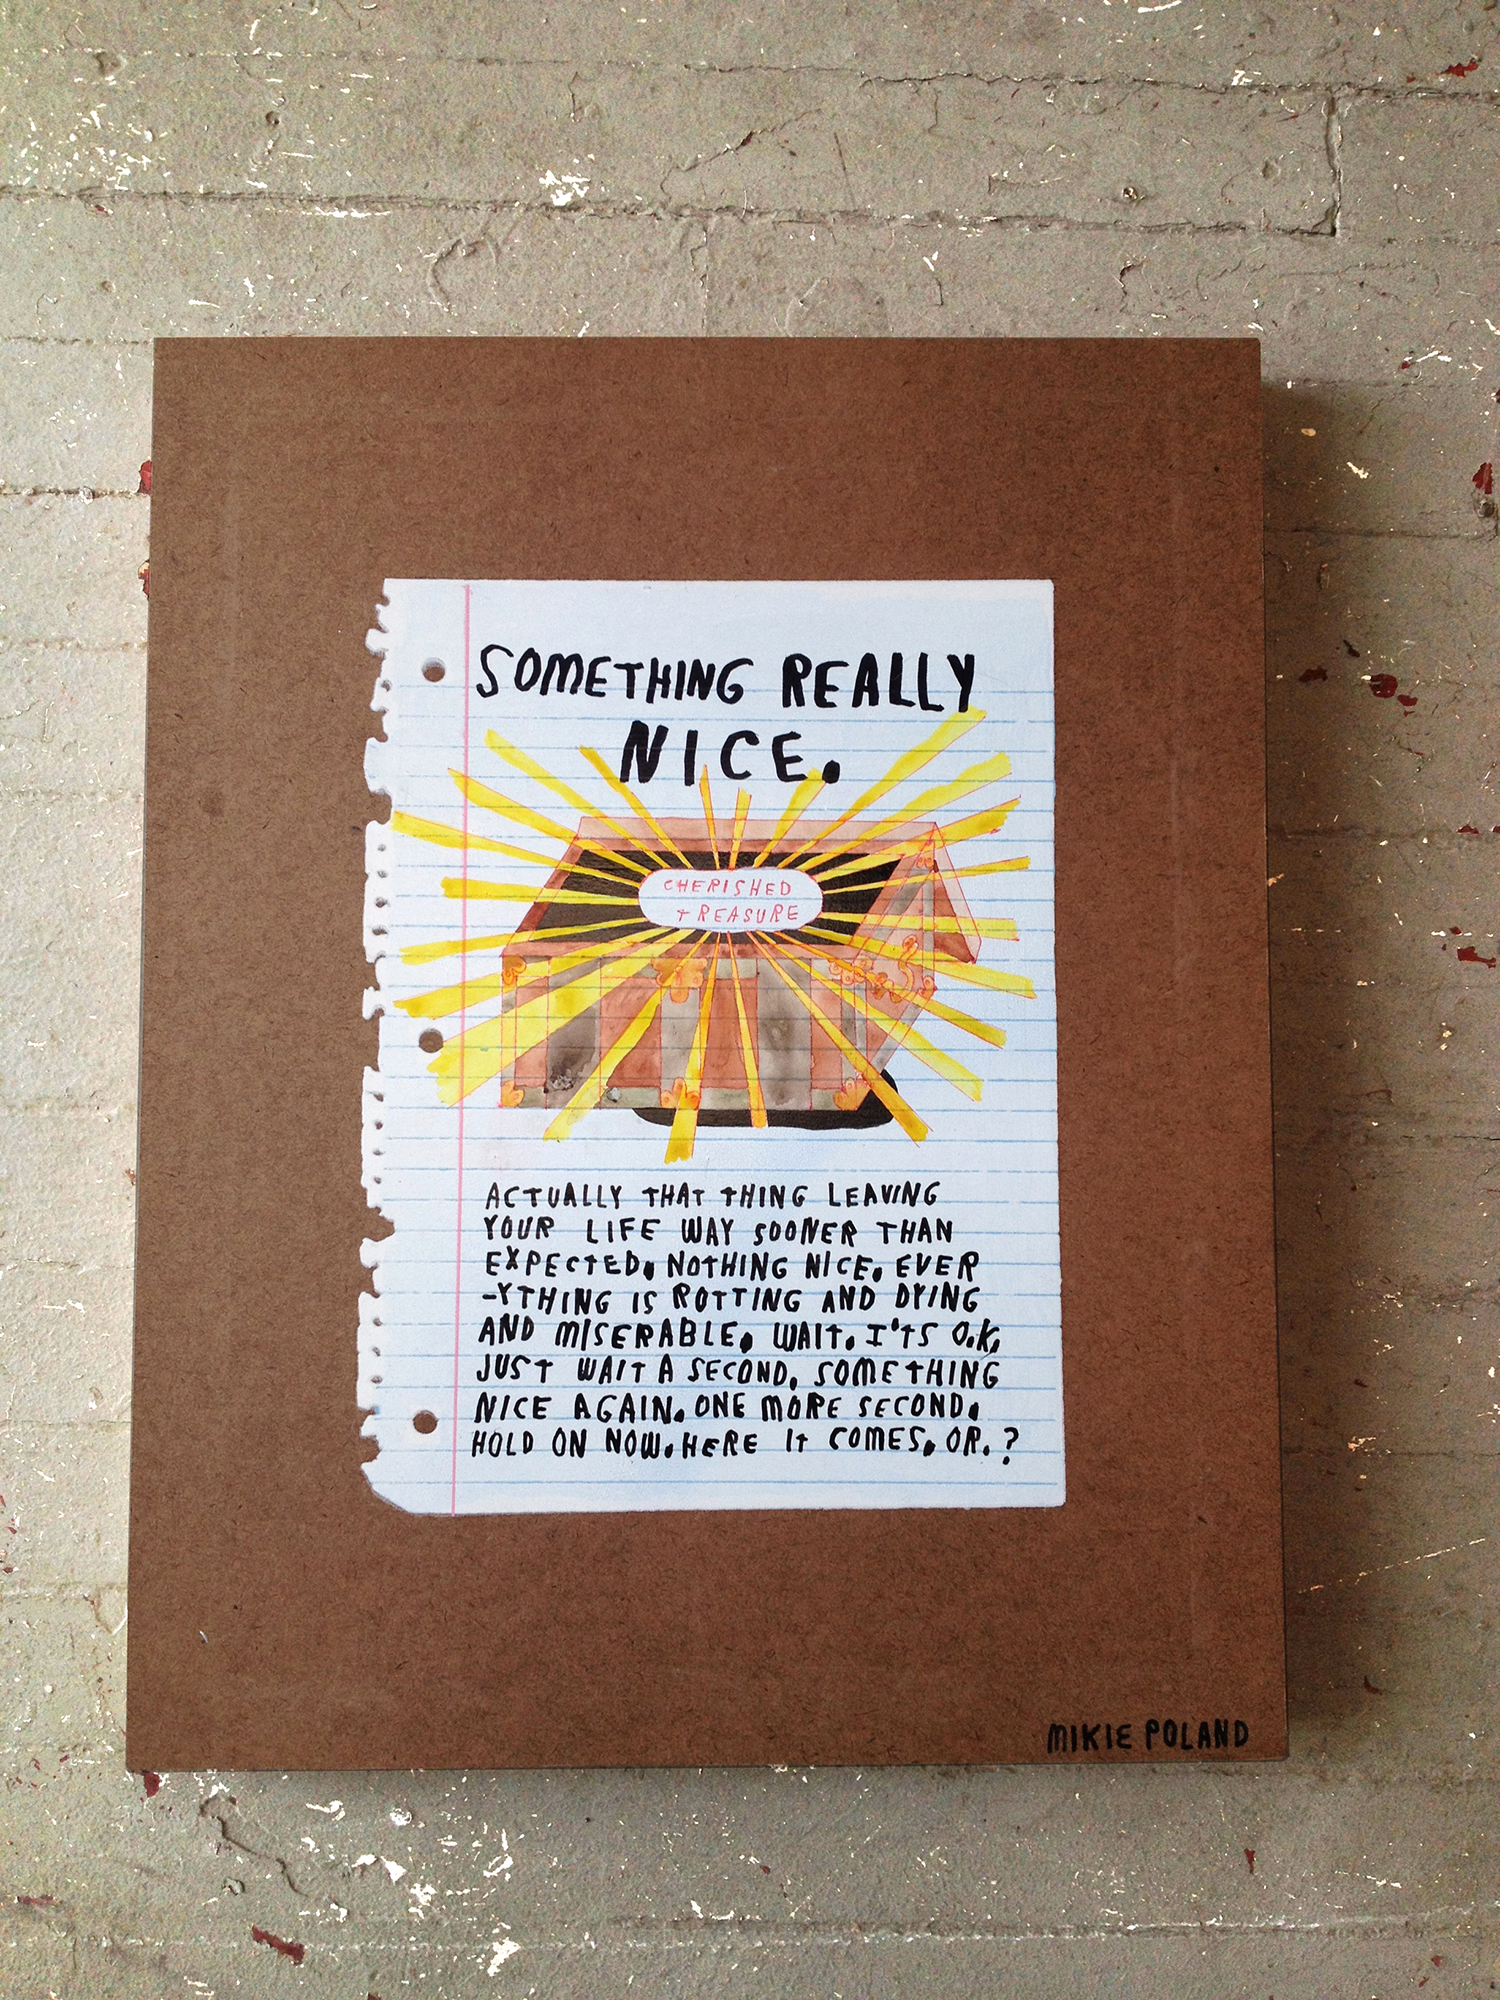 SOMETHING REALLY
NICE.
CHERISHED
TREASURE
ACTUALLY THAT THING LEAVING
YOUR LIFE WAY SOONER THAN
EXPECTED. NOTHING NICE. EVER
-YTHING IS ROTTING AND DYING
AND MISERABLE. WAIT. I'TS O.K,
JUST WAIT A SECOND, SOMETHING
NICE AGAIN. ONE MORE SECOND.
HOLD ON NOW. HERE IT COMES. OR. ?
MIKIE POLAND